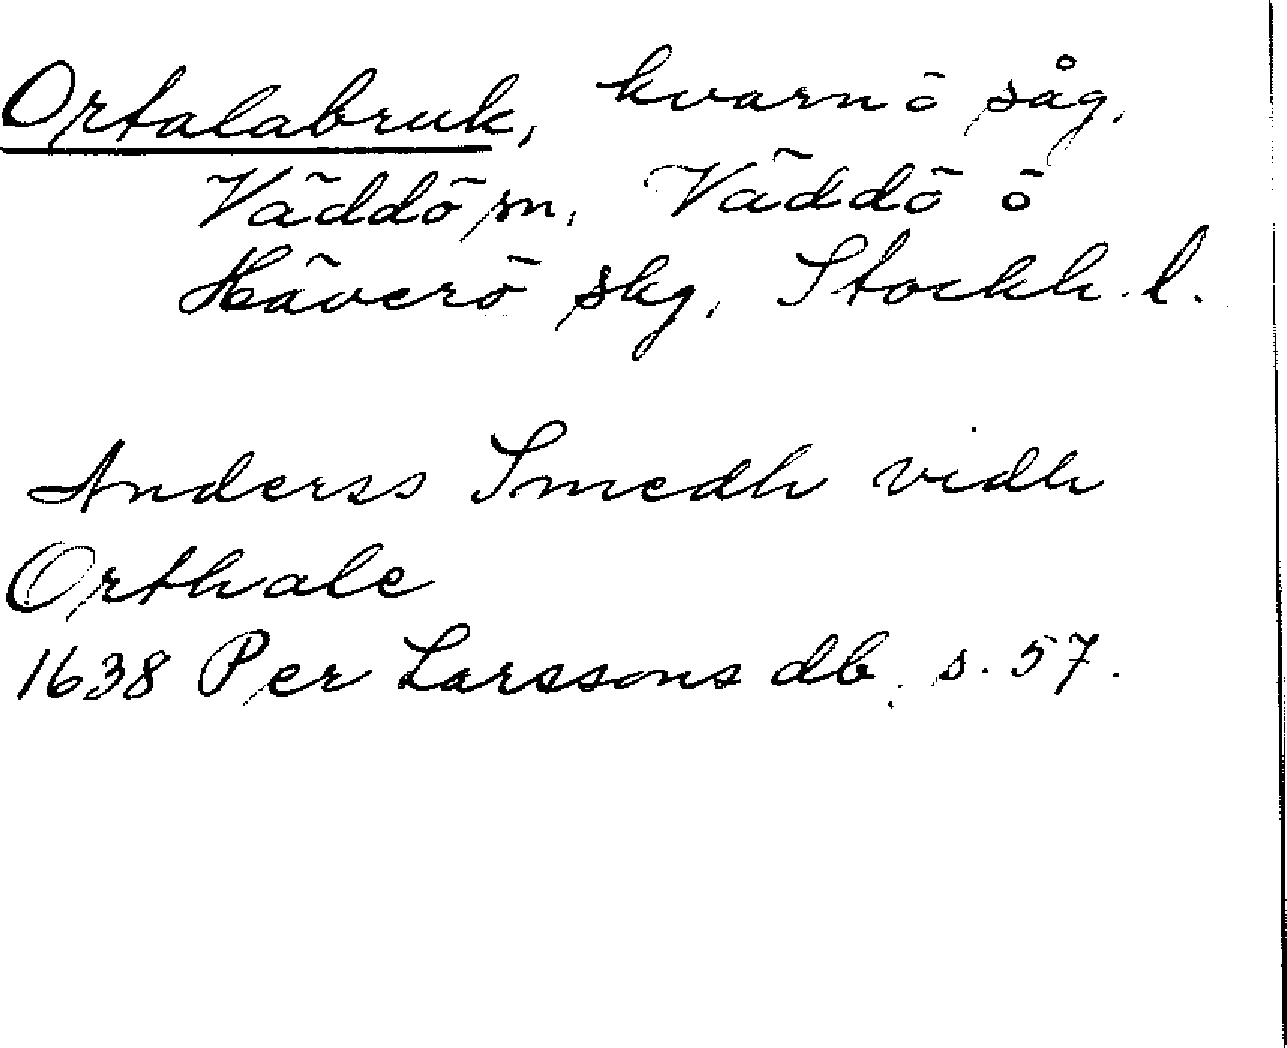 Ortalabruk, kvarn ö såg,
Väddö sn, Väddö ö
Häverö skg, Stockh. l.
Anderss Smedh vidh
Orthale
1638 Per Larssons db. s. 57.